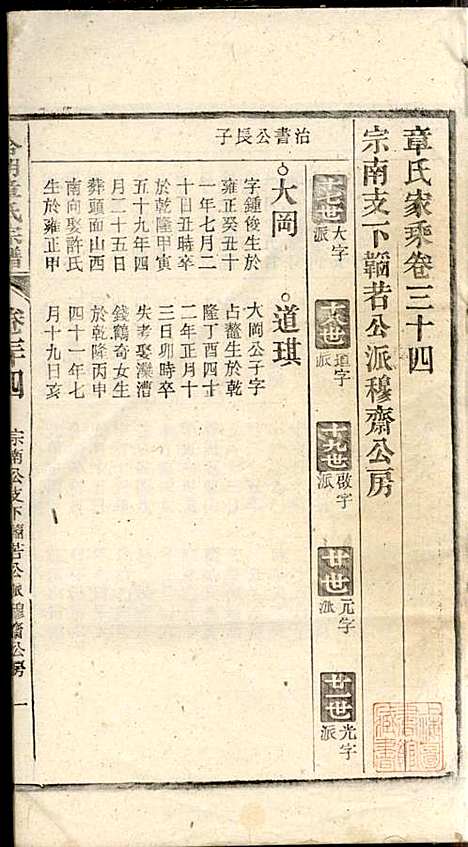 章氏家乘卷三十四
宗南支下黼若公派穆齋公房
十七世 大字派
十八世 道字派
十九世 啟字派
廿世 元字派
廿一世 光字派
治書公長子
大岡
字鍾俊生於
雍正癸丑十
一年七月二
十日丑時卒
於乾隆甲寅
五十九年四
月二十五日
葬頭面山西
南向娶許氏
生於雍正甲
道琪
大岡公子字
占鰲生於乾
隆丁酉四十
二年正月十
三日卯時卒
失考娶濼漕
錢鶴奇女生
於乾隆丙申
四十一年七
月十九日亥
章氏宗譜
卷三十四
宗南公支下黼若公派穆齋公房
一